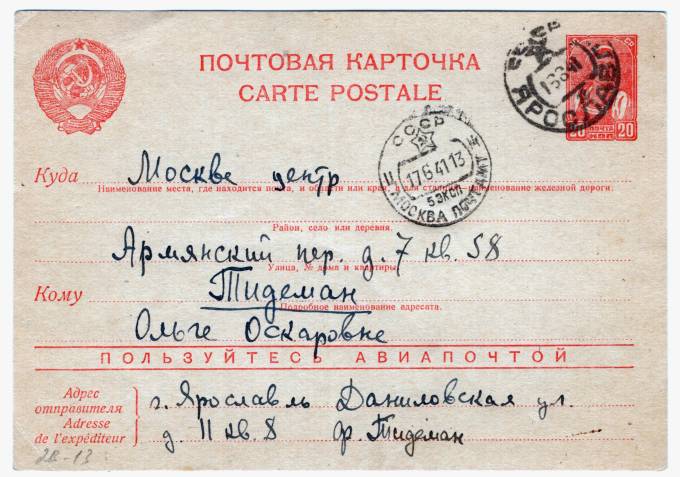 ПОЧТОВАЯ КАРТОЧКА
CARTE POSTALE
20 ПОЧТА 20
КОП
СССР
17 6 41 13
5 ЭКСП
МОСКВА
ЯРОСЛАВЛЬ
Куда Москва центр
Наименование места, где находится почта, и области или края, а для станций—наименование железной дороги.
Район, село или деревня.
Армянский пер. д. 7 кв. 58
Улица, № дома и квартиры.
Кому Тидеман
Подробное наименование адресата.
Ольге Оскаровне
ПОЛЬЗУЙТЕСЬ АВИАПОЧТОЙ
Адрес
отправителя
Adresse
de l'expéditeur
г. Ярославль Даниловская ул.
д 11 кв. 8 Тидеман
28-13